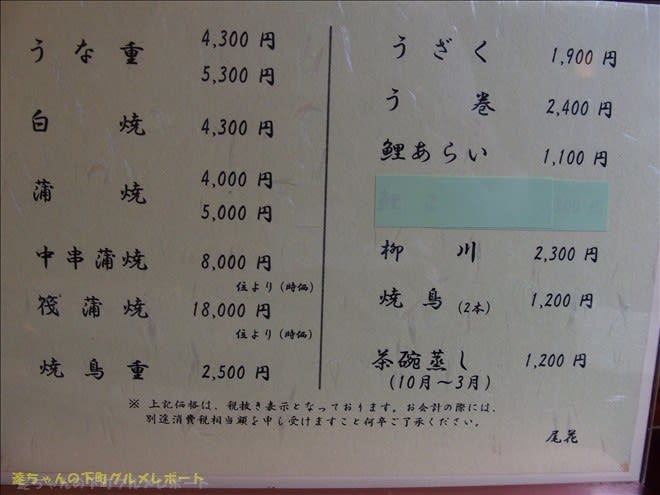 うな重 4,300 円
5,300 円
白焼 4,300 円
蒲焼 4,000 円
5,000 円
中串蒲焼 8,000 円
位より(時価)
筏蒲焼 18,000 円
位より(時価)
焼鳥重 2,500 円
うざく 1,900 円
う巻 2,400 円
鯉あらい 1,100 円
柳川 2,300 円
焼鳥(2本) 1,200 円
茶碗蒸し 1,200 円
(10月～3月)
※ 上記価格は、税抜き表示となっております。お会計の際には、
別途消費税相当額を申し受けますこと何卒ご了承ください。
尾花
達ちゃんの下町グルメレポート